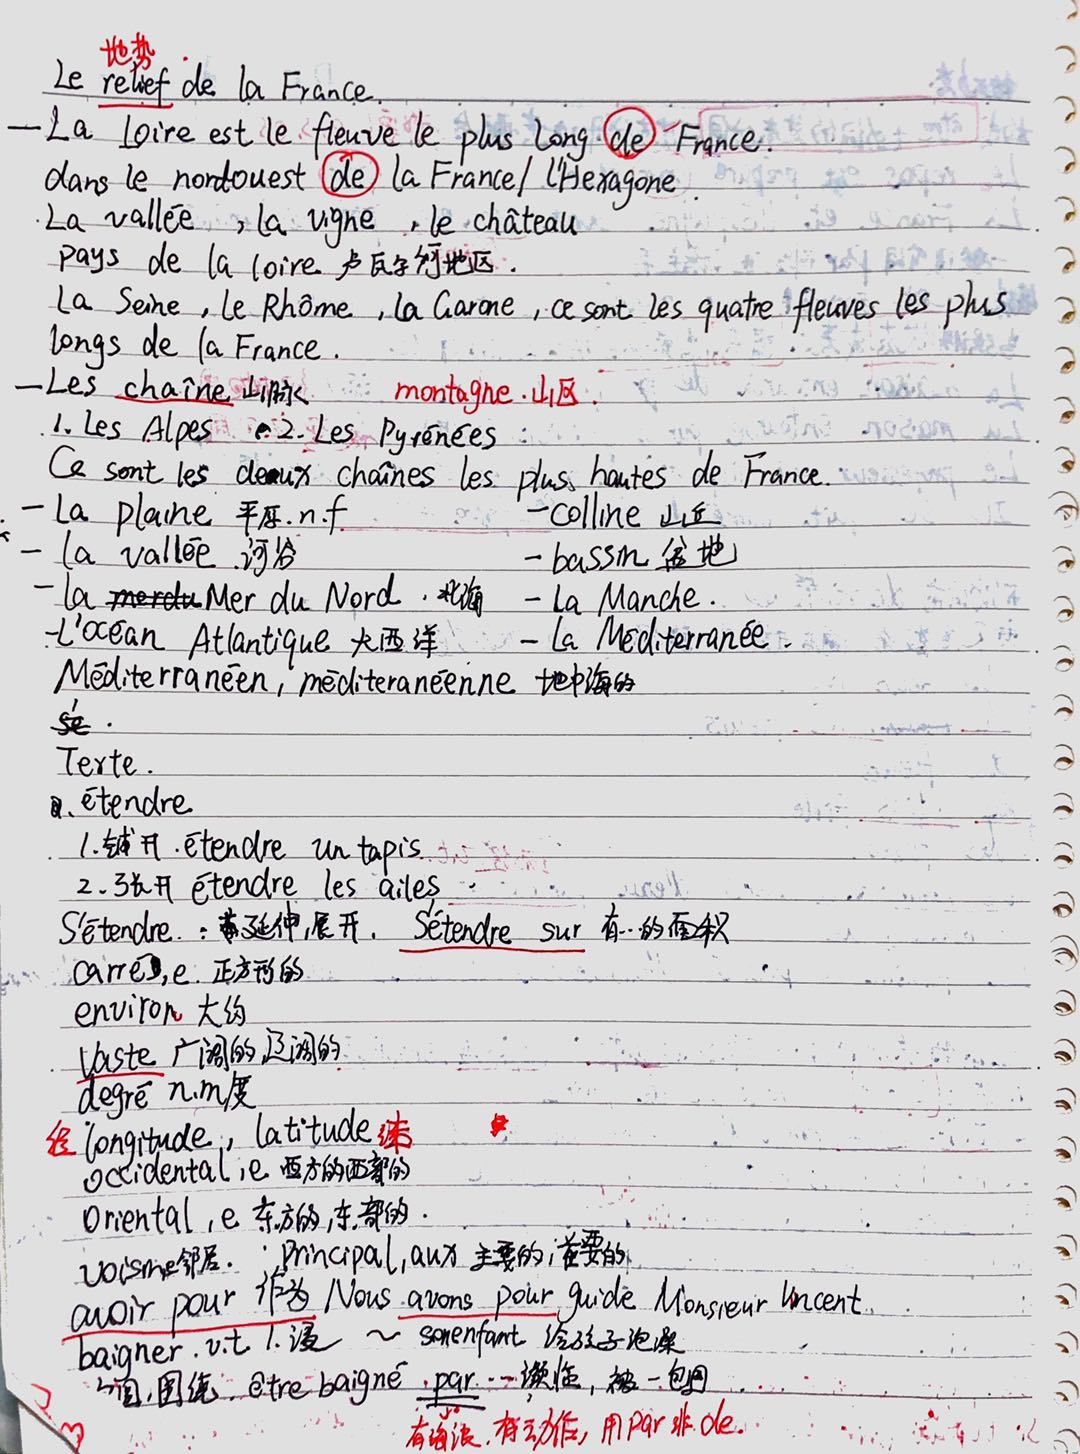 地势
Le relief de la France.
— La Loire est le fleuve le plus long de France.
dans le nordouest de la France / l'Hexagone
La vallée, la vigne, le château
pays de la loire 卢瓦尔河地区.
La Seine, Le Rhôme, La Garone, ce sont les quatre fleuves les plus
longs de la France.
— Les chaîne 山脉 montagne. 山区.
1. Les Alpes 2. Les Pyrénées
Ce sont les deux chaînes les plus hautes de France.
— La plaine 平原. n.f — colline 山丘
— la vallée 河谷 — bassin 盆地
— la Mer du Nord. 北海 — La Manche.
- L'océan Atlantique 大西洋 — La Méditerranée.
Méditerranéen, méditeranéenne 地中海的
Terte.
étendre
1. 铺开. étendre un tapis
2. 张开 étendre les ailes
S'étendre: 延伸, 展开. S'étendre sur 有..的面积
carré, e. 正方形的
environ 大约
Vaste 广阔的 辽阔的
degré n.m 度
经 longitude, latitude 纬
occidental, e 西方的 西部的
Oriental, e 东方的, 东部的.
voisine 邻居. Principal, aux 主要的, 重要的
avoir pour 作为 Nous avons pour guide Monsieur Vincent
baigner. v.t 1. 浸 ~ son enfant 给孩子泡澡
围绕 être baigné par … 濒临, 被一包围
有海浪. 有动作, 用 par 非 de.